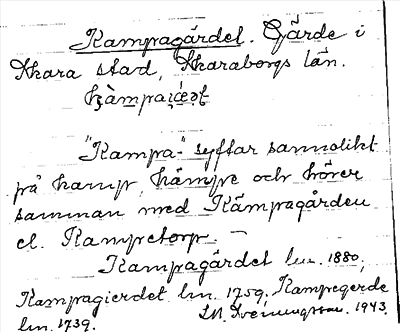 Kampagärdet. Gärde i
Skara stad, Skaraborgs län.
"Kampa-" syftar sannolikt
på kamp, kämpe och hörer
samman med Kämpagården
el. Kampetorp –
Kampagärdet lm. 1880;
Kampagierdet lm. 1759; Kampegerde
lm. 1739. 1943.